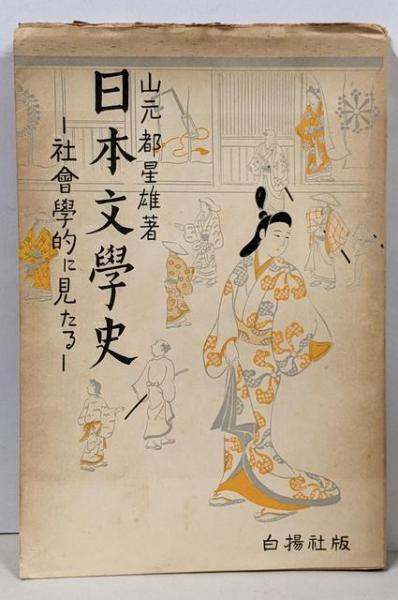 山元都星雄著
日本文學史
ー社會學的に見たるー
白揚社版